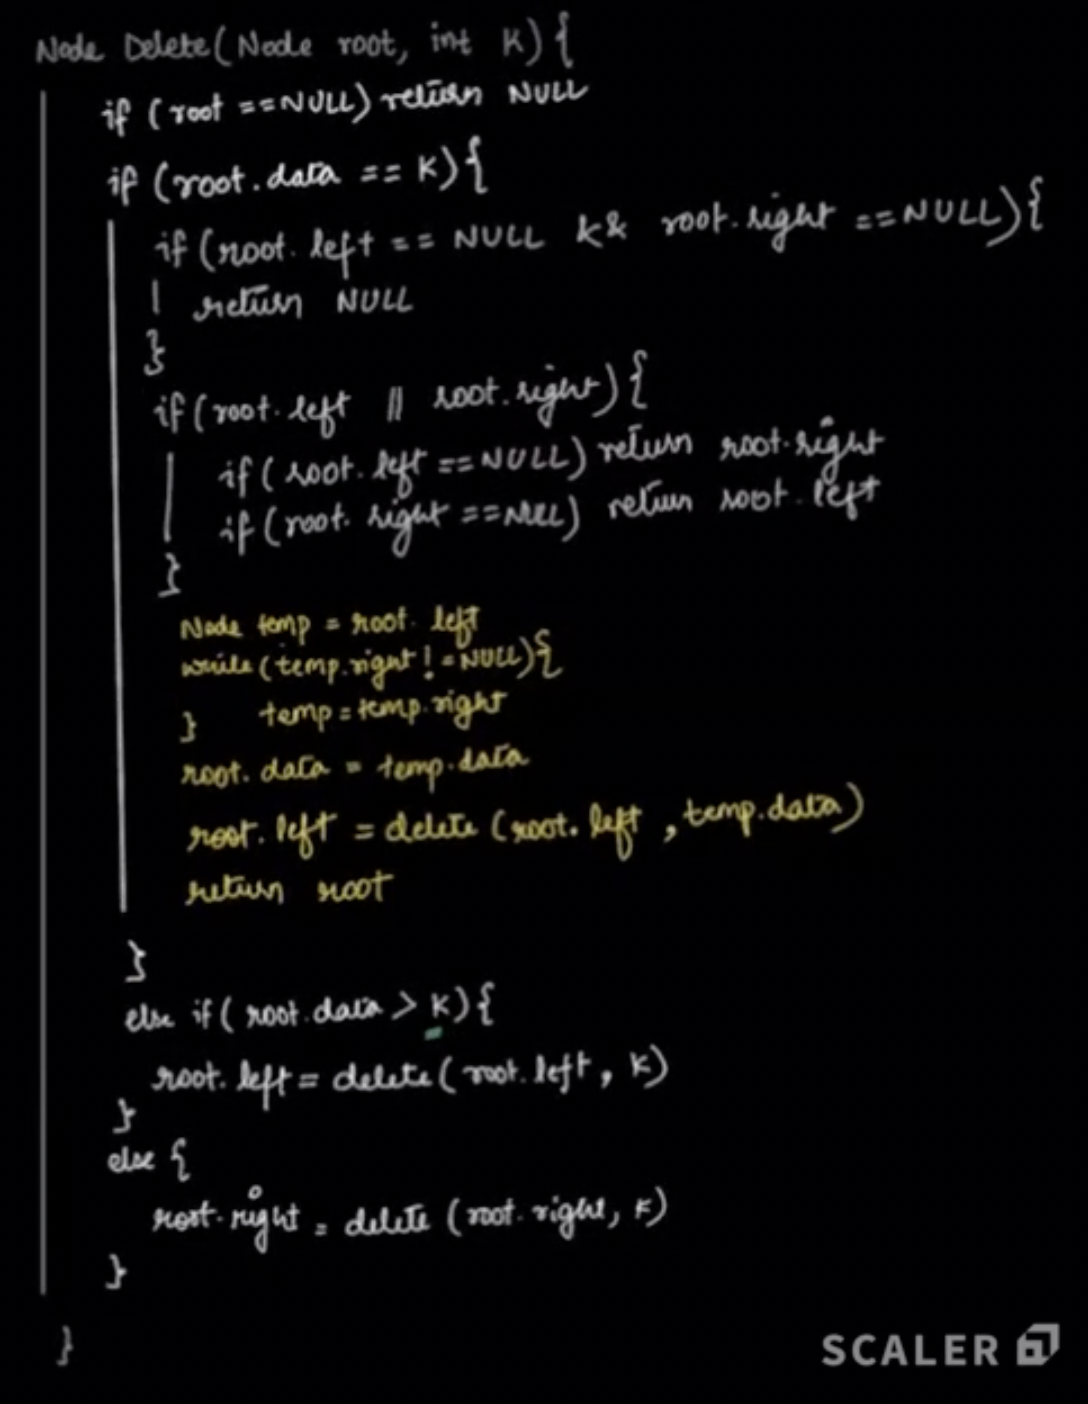 Node Delete(Node root, int K){
if (root ==NULL) return NULL
if (root.data == K){
if (root.left == NULL && root.right ==NULL){
return NULL
}
if (root.left || root.right){
if (root.left ==NULL) return root.right
if (root.right ==NULL) return root.left
}
Node temp = root.left
while (temp.right != NULL){
temp = temp.right
}
root.data = temp.data
root.left = delete (root.left, temp.data)
return root
}
else if (root.data > K){
root.left = delete (root.left, K)
}
else {
root.right = delete (root.right, K)
}
}
SCALER